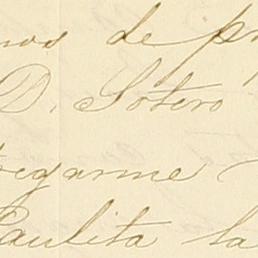 nos de p
D. Sotero
egarme
Paulita la